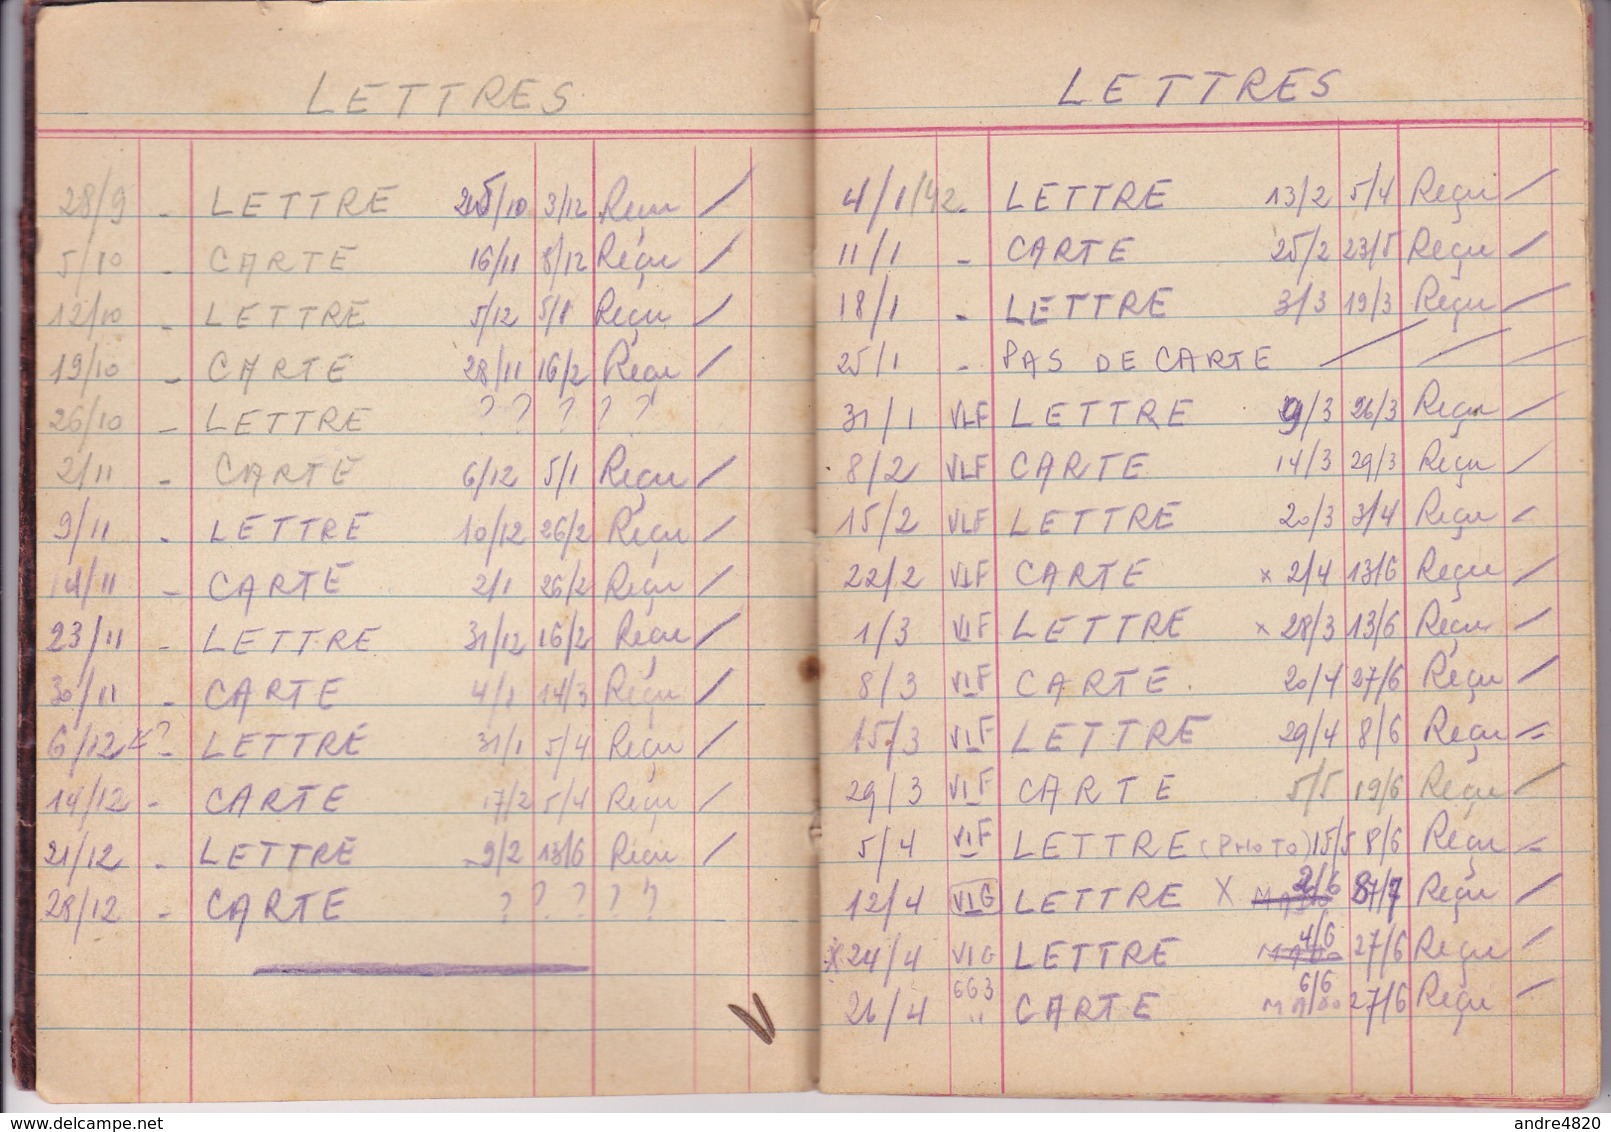 LETTRES
28/9 - LETTRE 25/10 3/12 Reçu /
5/10 - CARTE 16/11 8/12 Reçu /
12/10 - LETTRE 5/12 5/1 Reçu /
19/10 - CARTE 28/11 16/2 Reçu /
26/10 - LETTRE ? ? ? ? ?
2/11 - CARTE 6/12 5/1 Reçu /
9/11 - LETTRE 10/12 26/2 Reçu /
14/11 - CARTE 2/1 26/2 Reçu /
23/11 - LETTRE 31/12 16/2 Reçu /
30/11 - CARTE 4/1 14/3 Reçu /
6/12 ? - LETTRE 31/1 5/4 Reçu /
14/12 - CARTE 17/2 5/4 Reçu /
21/12 - LETTRE 9/2 13/6 Reçu /
28/12 - CARTE ? ? ? ? ?
LETTRES
4/1/42 - LETTRE 13/2 5/4 Reçu /
11/1 - CARTE 25/2 23/5 Reçu /
18/1 - LETTRE 3/3 19/3 Reçu /
25/1 - PAS DE CARTE / / /
31/1 VLF LETTRE 9/3 26/3 Reçu /
8/2 VLF CARTE 14/3 29/3 Reçu /
15/2 VLF LETTRE 20/3 3/4 Reçu /
22/2 VLF CARTE x 2/4 13/6 Reçu /
1/3 VIF LETTRE x 28/3 13/6 Reçu /
8/3 VIF CARTE. 20/4 27/6 Reçu /
15/3 VIF LETTRE 29/4 8/6 Reçu =
29/3 VIF CARTE 5/5 19/6 Reçu /
5/4 VIF LETTRE (PHOTO) 15/5 8/6 Reçu =
12/4 VIG LETTRE X 2/6 7/7 Reçu /
X 24/4 VIG LETTRE 4/6 27/6 Reçu /
26/4 663 " CARTE 6/6 27/6 Reçu /
V
www.delcampe.net
andre4820